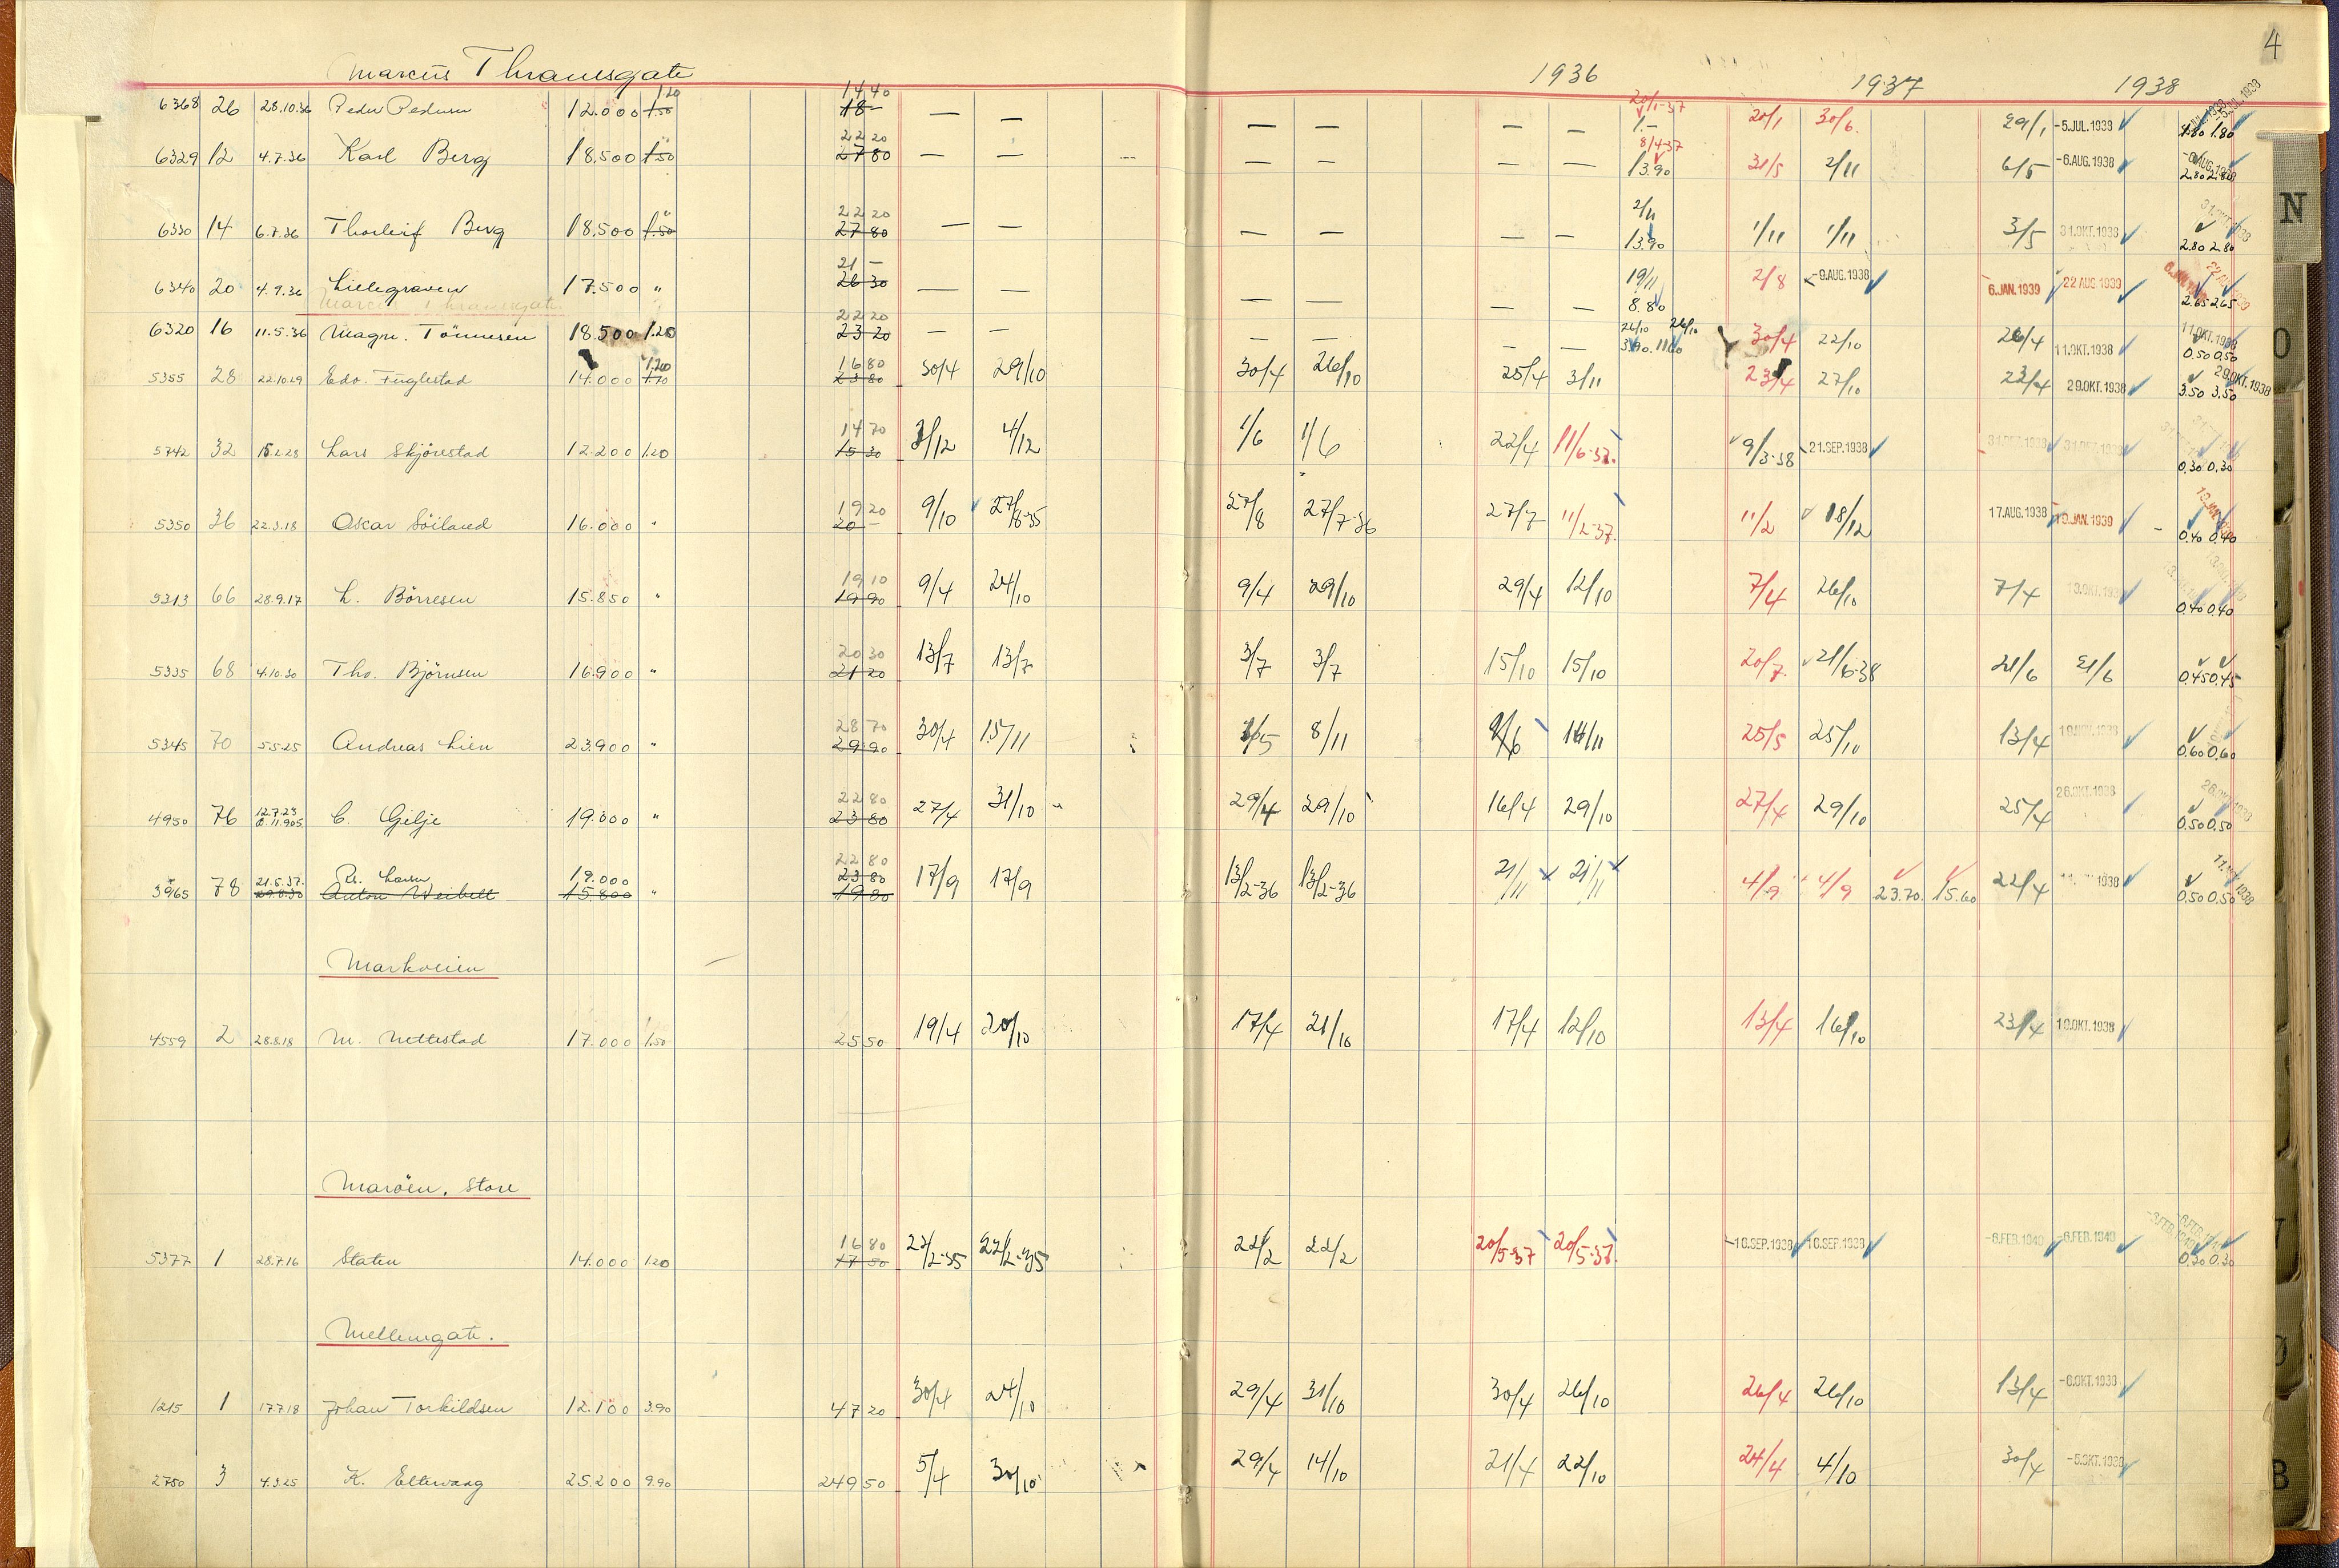 4
Marcus Thranesgate 1936 1937 1938
6368 26 28.10.36 Peder Pedersen 12.000 1.20 1.50 14 40 18 - — — — — — — 20/1-37 1.- 20/1 30/6. 29/1 -5.JUL.1938 1.80 1.80
6329 12 4.7.36 Karl Berg 18.500 " 1.50 22 20 27 80 — — — — — — 8/4-37 13.90 31/5 2/11 6/5 -6.AUG.1938 2.80 2.80
6330 14 6.7.36 Thorleif Berg 18.500 " 1.50 22 20 27 80 — — — — — — 2/11 13.90 1/11 1/11 3/5 31.OKT.1938 2.80 2.80
6340 20 4.9.36 Lillegraven 17.500 " 21 - 26 30 — — — — — — 19/11 8.80 2/8 -9.AUG.1938 6.JAN.1939 22 AUG.1939 2.65 2.65
Marcus Thranesgate
6320 16 11.5.36 Magn. Tönnesen 18.500 1.20 22 20 23 20 — — — — — — 26/10 26/10 11.60 30/4 22/10 26/4 11.OKT.1938 0.50 0.50
5355 28 22.10.29 Edv. Fuglestad 14.000 1.20 1.70 16 80 23 80 30/4 29/10 30/4 26/10 25/4 3/11 23/4 27/10 22/4 29.OKT.1938 3.50 3.50
5742 32 15.2.28 Lars Skjørestad 12.200 1.20 14 70 15 30 3/12 4/12 1/6 1/6 22/4 11/6-37. 9/3-38 21.SEP.1938 31.DES.1938 31.DES.1938 0.30 0.30
5350 36 22.3.18 Oscar Söiland 16.000 " 19 20 20 - 9/10 27/8-35 27/8 27/7-36 27/7 11/2-37. 11/2 18/12 17.AUG.1938 19.JAN.1939 0.40 0.40
5313 66 28.9.17 L. Börresen 15.850 " 19 10 19 90 9/4 24/10 9/4 29/10 29/4 12/10 7/4 26/10 7/4 13.OKT.1938 0.40 0.40
5335 68 4.10.30 Tho. Björnsen 16.900 " 20 30 21 20 13/7 13/7 3/7 3/7 15/10 15/10 20/7. 21/6-38 21/6 21/6 0.45 0.45
5345 70 5.5.25 Andreas Lien 23.900 " 28 70 29 90 30/4 15/11 8/11 9/6 14/11 25/5 25/10 13/4 19.NOV.1938 0.60 0.60
4950 76 12.7.23 11.905 C. Gilje 19.000 " 22 80 23 80 27/4 31/10 29/4 29/10 16/4 29/10 27/4 29/10 25/4 26.OKT.1938 0.50 0.50
3965 78 21.5.37. 29.8.30 Larsen Anton Weibell 19.000 15.800 " 22 80 23 80 19 80 17/9 17/9 13/2-36 13/2-36 21/11 21/11 4/9 4/9 23.70. 15.60 22/4 1938 0.50 0.50
Markveien
4559 2 28.8.18 M. Nettestad 17.000 1.50 25 50 19/4 20/10 17/4 21/10 17/4 12/10 13/4 16/10 23/4 10.OKT.1938
Maroen, Store
5377 1 28.7.16 Staten 14.000 1.20 16 80 17 50 22/2-35 22/2-35 22/2 22/2 20/5-37 20/5-37. -16.SEP.1938 16.SEP.1938 -6.FEB.1940 -6.FEB.1940 0.30 0.30
Mellemgate.
1215 1 17.7.18 Johan Torkildsen 12.100 3.90 47 20 30/4 24/10 29/4 31/10 30/4 26/10 26/4 26/10 13/4 -6.OKT.1938
2750 3 4.3.25 K. Eltervaag 25.200 9.90 249 50 5/4 30/10 29/4 14/10 21/4 22/10 24/4 4/10 30/4 -5.OKT.1938
N
O